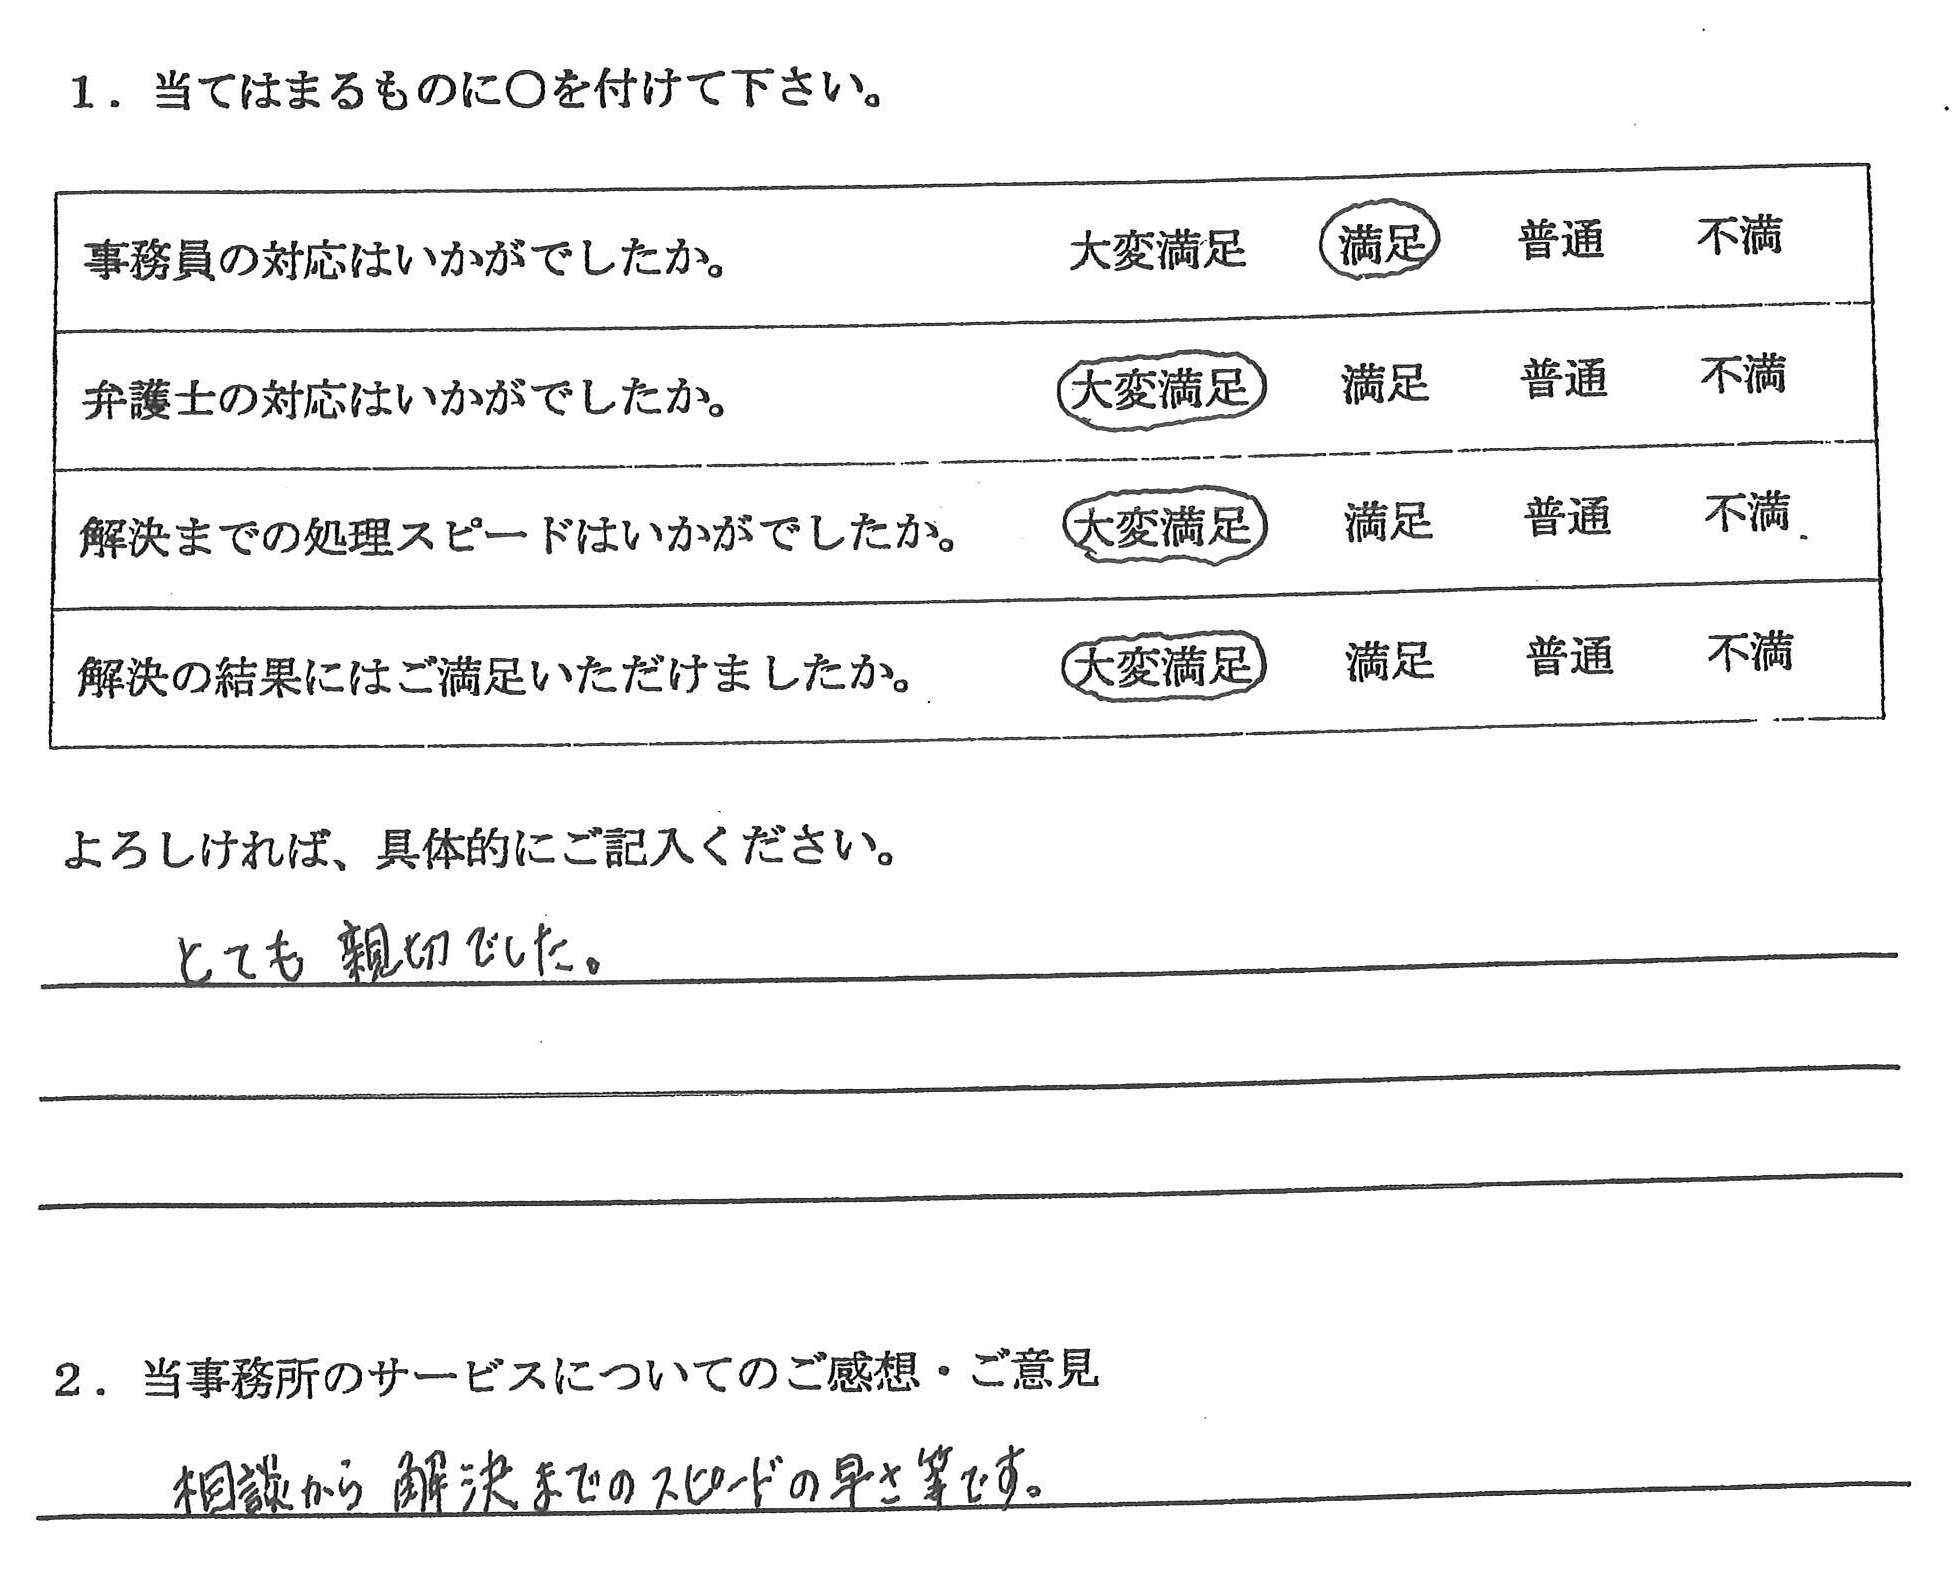 1．当てはまるものに〇を付けて下さい。
事務員の対応はいかがでしたか。 大変満足 満足 普通 不満
弁護士の対応はいかがでしたか。 大変満足 満足 普通 不満
解決までの処理スピードはいかがでしたか。 大変満足 満足 普通 不満
解決の結果にはご満足いただけましたか。 大変満足 満足 普通 不満
よろしければ、具体的にご記入ください。
とても親切でした。
2．当事務所のサービスについてのご感想・ご意見
相談から解決までのスピードの早さ等です。